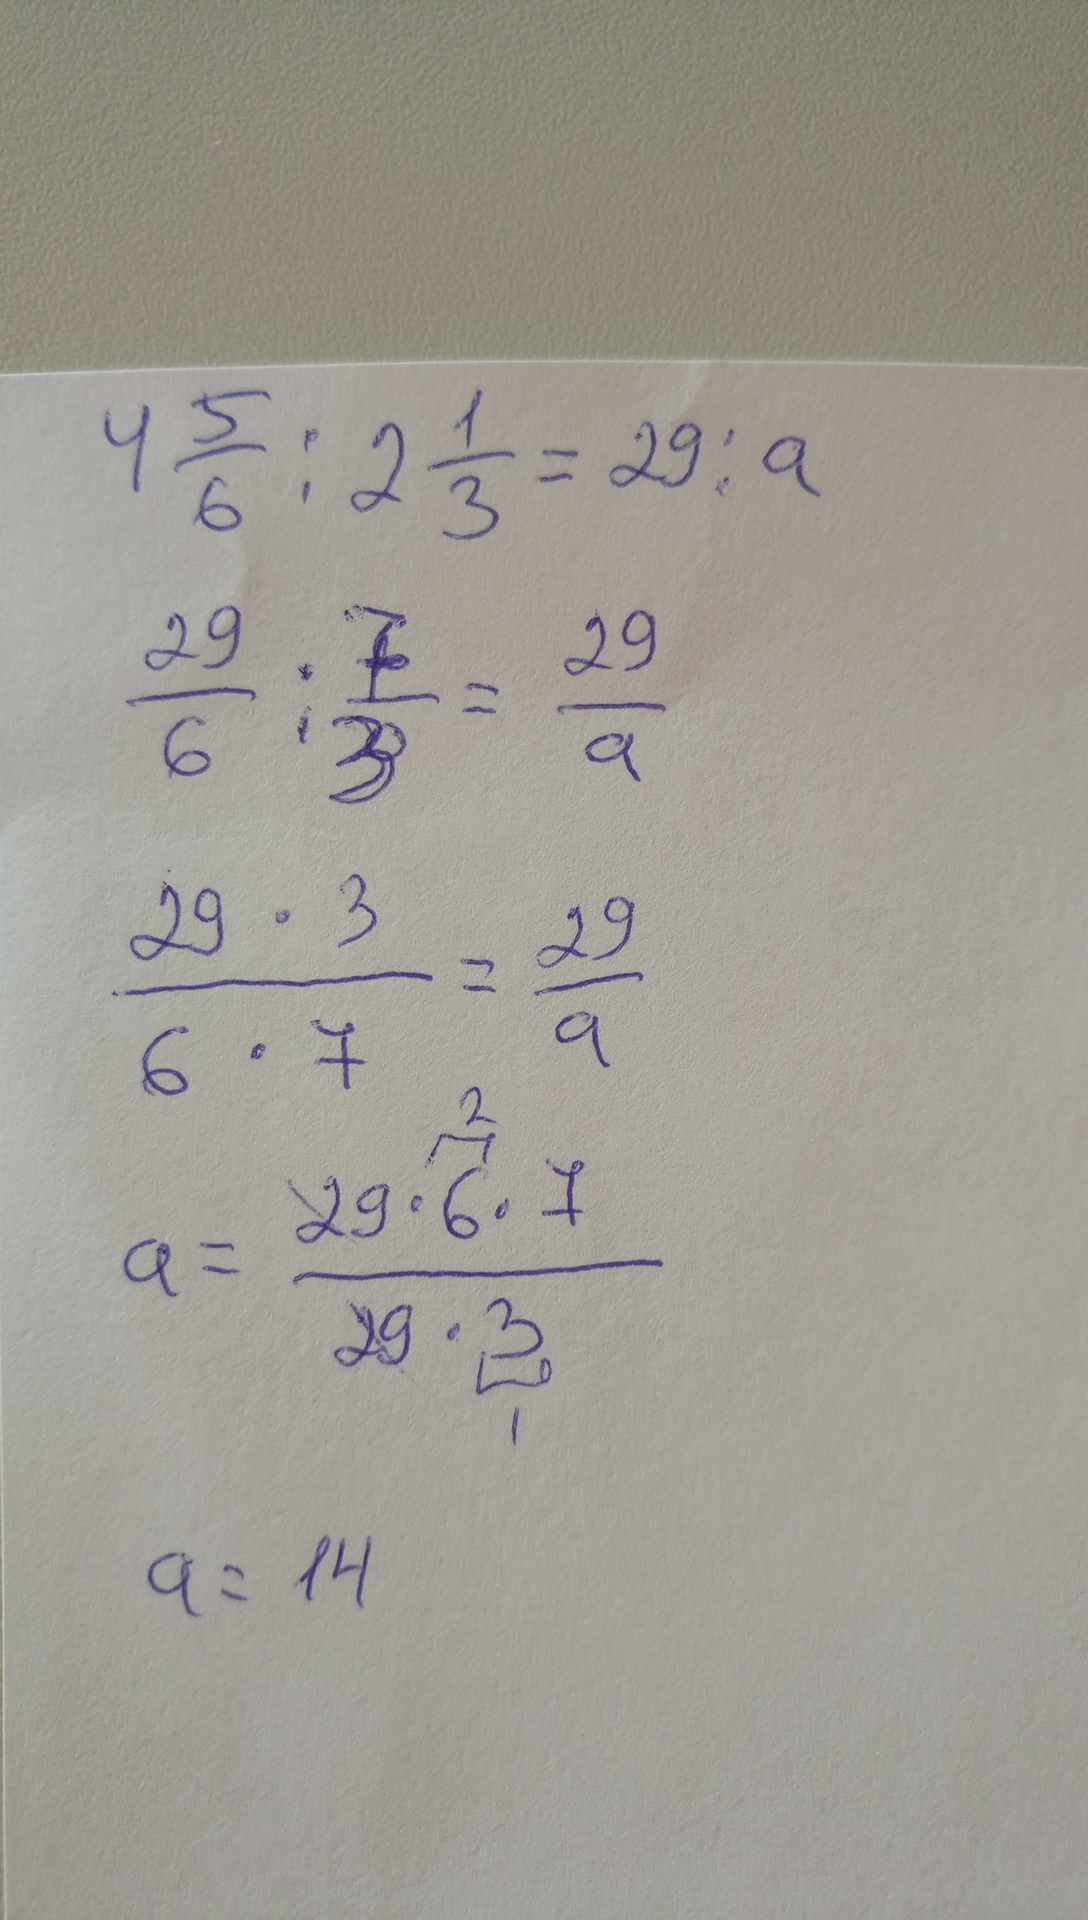 4 5/6 : 2 1/3 = 29 : a
29/6 : 7/3 = 29/a
29 · 3 / 6 · 7 = 29/a
2
a = 29 · 6 · 7 / 29 · 3
1
a = 14